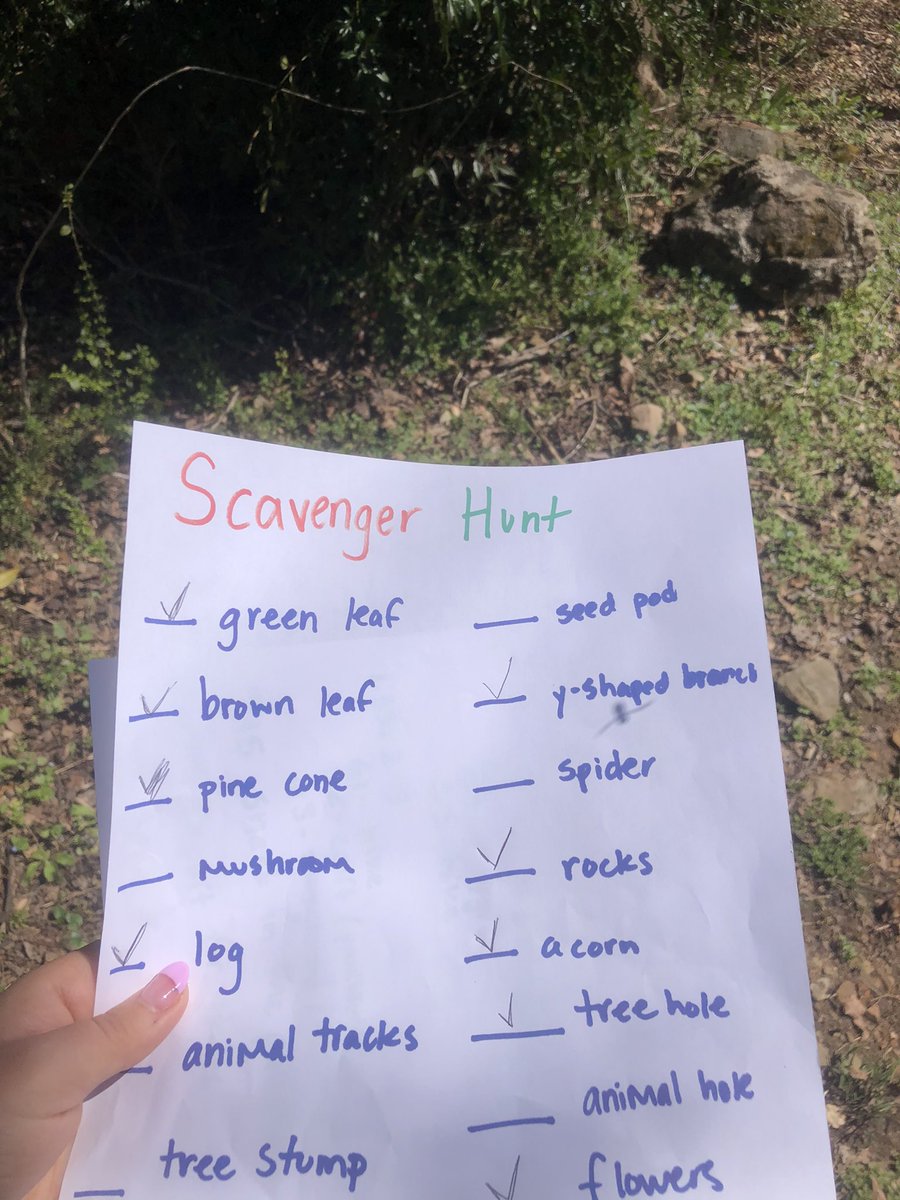 Scavenger Hunt
green leaf
brown leaf
pine cone
mushroom
log
animal tracks
tree stump
seed pod
y-shaped branch
spider
rocks
acorn
tree hole
animal hole
flowers